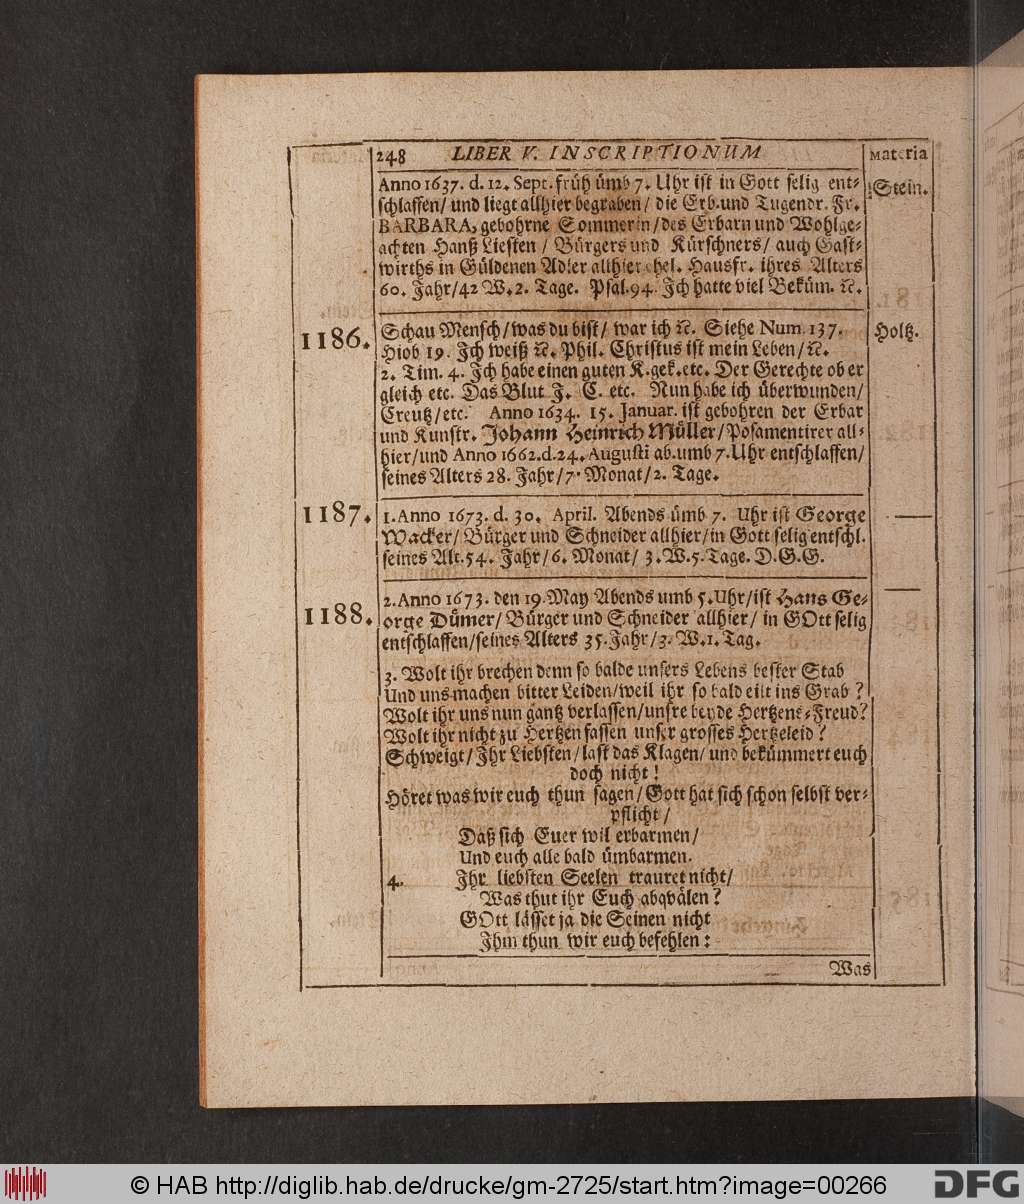 248 LIBER V. INSCRIPTIONUM Materia
Anno 1637. d. 12. Sept. früh ümb 7. Uhr ist in Gott selig ent- Stein.
schlaffen/ und liegt allhier begraben/ die Erb. und Tugendr. Fr.
BARBARA, gebohrne Sommerin/ des Erbarn und Wohlge-
achten Hanß Liesten / Bürgers und Kürschners/ auch Gast-
wirths in Güldenen Adler allhier ehel. Hausfr. ihres Alters
60. Jahr/ 42 W. 2. Tage. Psal. 94. Ich hatte viel Beküm. ꝛc.
1186. Schau Mensch/ was du bist/ war ich ꝛc. Siehe Num. 137. Holtz.
Hiob 19. Ich weiß ꝛc. Phil. Christus ist mein Leben/ ꝛc.
2. Tim. 4. Ich habe einen guten K. gek. etc. Der Gerechte ob er
gleich etc. Das Blut J. C. etc. Nun habe ich überwunden/
Creutz/ etc. Anno 1634. 15. Januar. ist gebohren der Erbar
und Kunstr. Johann Heinrich Müller/ Posamentirer all-
hier/ und Anno 1662. d. 24. Augusti ab. umb 7. Uhr entschlaffen/
seines Alters 28. Jahr/ 7. Monat/ 2. Tage.
1187. 1. Anno 1673. d. 30. April. Abends ümb 7. Uhr ist George
Wacker/ Bürger und Schneider allhier/ in Gott selig entschl.
seines Alt. 54. Jahr/ 6. Monat/ 3. W. 5. Tage. D. G. G.
1188. 2. Anno 1673. den 19. May Abends umb 5. Uhr/ ist Hans Ge-
orge Dümer/ Bürger und Schneider allhier/ in GOtt selig
entschlaffen/ seines Alters 35. Jahr/ 3. W. 1. Tag.
3. Wolt ihr brechen denn so balde unsers Lebens bester Stab
Und uns machen bitter Leiden/ weil ihr so bald eilt ins Grab?
Wolt ihr uns nun gantz verlassen/ unsre beyde Hertzens-Freud?
Wolt ihr nicht zu Hertzen fassen unser grosses Hertzeleid?
Schweigt/ Ihr Liebsten/ last das Klagen/ und bekümmert euch
doch nicht!
Höret was wir euch thun sagen/ Gott hat sich schon selbst ver-
pflicht/
Daß sich Euer wil erbarmen/
Und euch alle bald ümbarmen.
4. Ihr liebsten Seelen trauret nicht/
Was thut ihr Euch abqvälen?
GOtt lässet ja die Seinen nicht
Ihm thun wir euch befehlen:
Was
© HAB http://diglib.hab.de/drucke/gm-2725/start.htm?image=00266
DFG